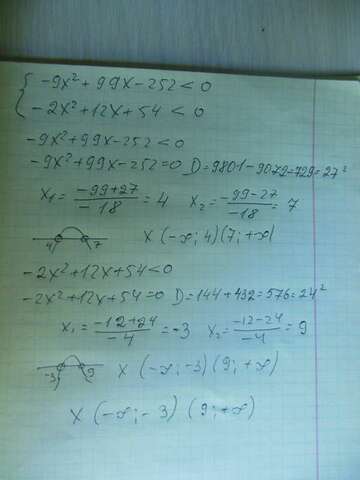 { -9x² + 99x - 252 < 0
-2x² + 12x + 54 < 0
-9x² + 99x - 252 < 0
-9x² + 99x - 252 = 0 D = 9801 - 9072 = 729 = 27²
x₁ = (-99+27)/(-18) = 4 x₂ = (-99-27)/(-18) = 7
4 7 x (-∞; 4) (7; +∞)
-2x² + 12x + 54 < 0
-2x² + 12x + 54 = 0 D = 144 + 432 = 576 = 24²
x₁ = (-12+24)/(-4) = -3 x₂ = (-12-24)/(-4) = 9
-3 9 x (-∞; -3) (9; +∞)
x (-∞; -3) (9; +∞)